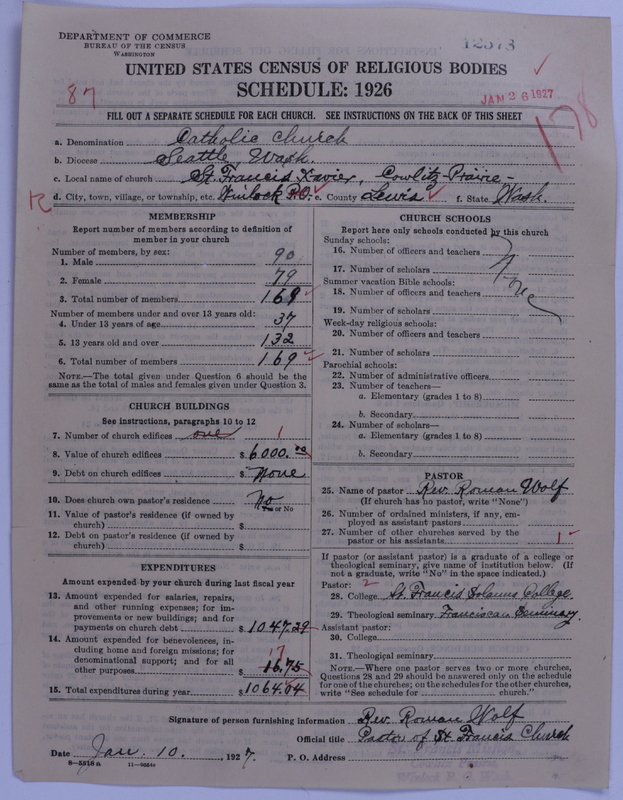 DEPARTMENT OF COMMERCE
BUREAU OF THE CENSUS
WASHINGTON
12573
UNITED STATES CENSUS OF RELIGIOUS BODIES
SCHEDULE: 1926
87
JAN 26 1927
178
FILL OUT A SEPARATE SCHEDULE FOR EACH CHURCH. SEE INSTRUCTIONS ON THE BACK OF THIS SHEET
a. Denomination Catholic Church
b. Diocese Seattle, Wash.
c. Local name of church St. Francis Xavier, Cowlitz-Prairie-
d. City, town, village, or township, etc. Winlock P.O. e. County Lewis f. State Wash.
MEMBERSHIP
Report number of members according to definition of
member in your church
Number of members, by sex:
1. Male 90
2. Female 79
3. Total number of members 169
Number of members under and over 13 years old:
4. Under 13 years of age 37
5. 13 years old and over 132
6. Total number of members 169
NOTE.—The total given under Question 6 should be
same as the total of males and females given under Question 3.
CHURCH BUILDINGS
See instructions, paragraphs 10 to 12
7. Number of church edifices one 1
8. Value of church edifices $6000.00
9. Debt on church edifices $ None
10. Does church own pastor's residence No
Yes or No
11. Value of pastor's residence (if owned by
church) $
12. Debt on pastor's residence (if owned by
church) $
EXPENDITURES
Amount expended by your church during last fiscal year
13. Amount expended for salaries, repairs,
and other running expenses; for im-
provements or new buildings; and for
payments on church debt $1047.29
14. Amount expended for benevolences, in-
cluding home and foreign missions; for
denominational support; and for all
other purposes $ 16.75
17
15. Total expenditures during year $1064.04
CHURCH SCHOOLS
Report here only schools conducted by this church
None
Sunday schools:
16. Number of officers and teachers
17. Number of scholars
Summer vacation Bible schools:
18. Number of officers and teachers
19. Number of scholars
Week-day religious schools:
20. Number of officers and teachers
21. Number of scholars
Parochial schools:
22. Number of administrative officers
23. Number of teachers—
a. Elementary (grades 1 to 8)
b. Secondary
24. Number of scholars—
a. Elementary (grades 1 to 8)
b. Secondary
PASTOR
25. Name of pastor Rev. Roman Wolf
(If church has no pastor, write "None")
26. Number of ordained ministers, if any, em-
ployed as assistant pastors
27. Number of other churches served by the
pastor or his assistants 1
If pastor (or assistant pastor) is a graduate of a college or
theological seminary, give name of institution below. (If
not a graduate, write "No" in the space indicated.)
Pastor: 2
28. College St. Francis Solanus College
29. Theological seminary Franciscan Seminary.
Assistant pastor:
30. College
31. Theological seminary
NOTE.—Where one pastor serves two or more churches,
Questions 28 and 29 should be answered only on the schedule
for one of the churches; on the schedules for the other churches,
write "See schedule for church."
Signature of person furnishing information Rev. Roman Wolf
Official title Pastor of St. Francis Church
Date Jan. 10, 1927. P. O. Address
8-5518 a